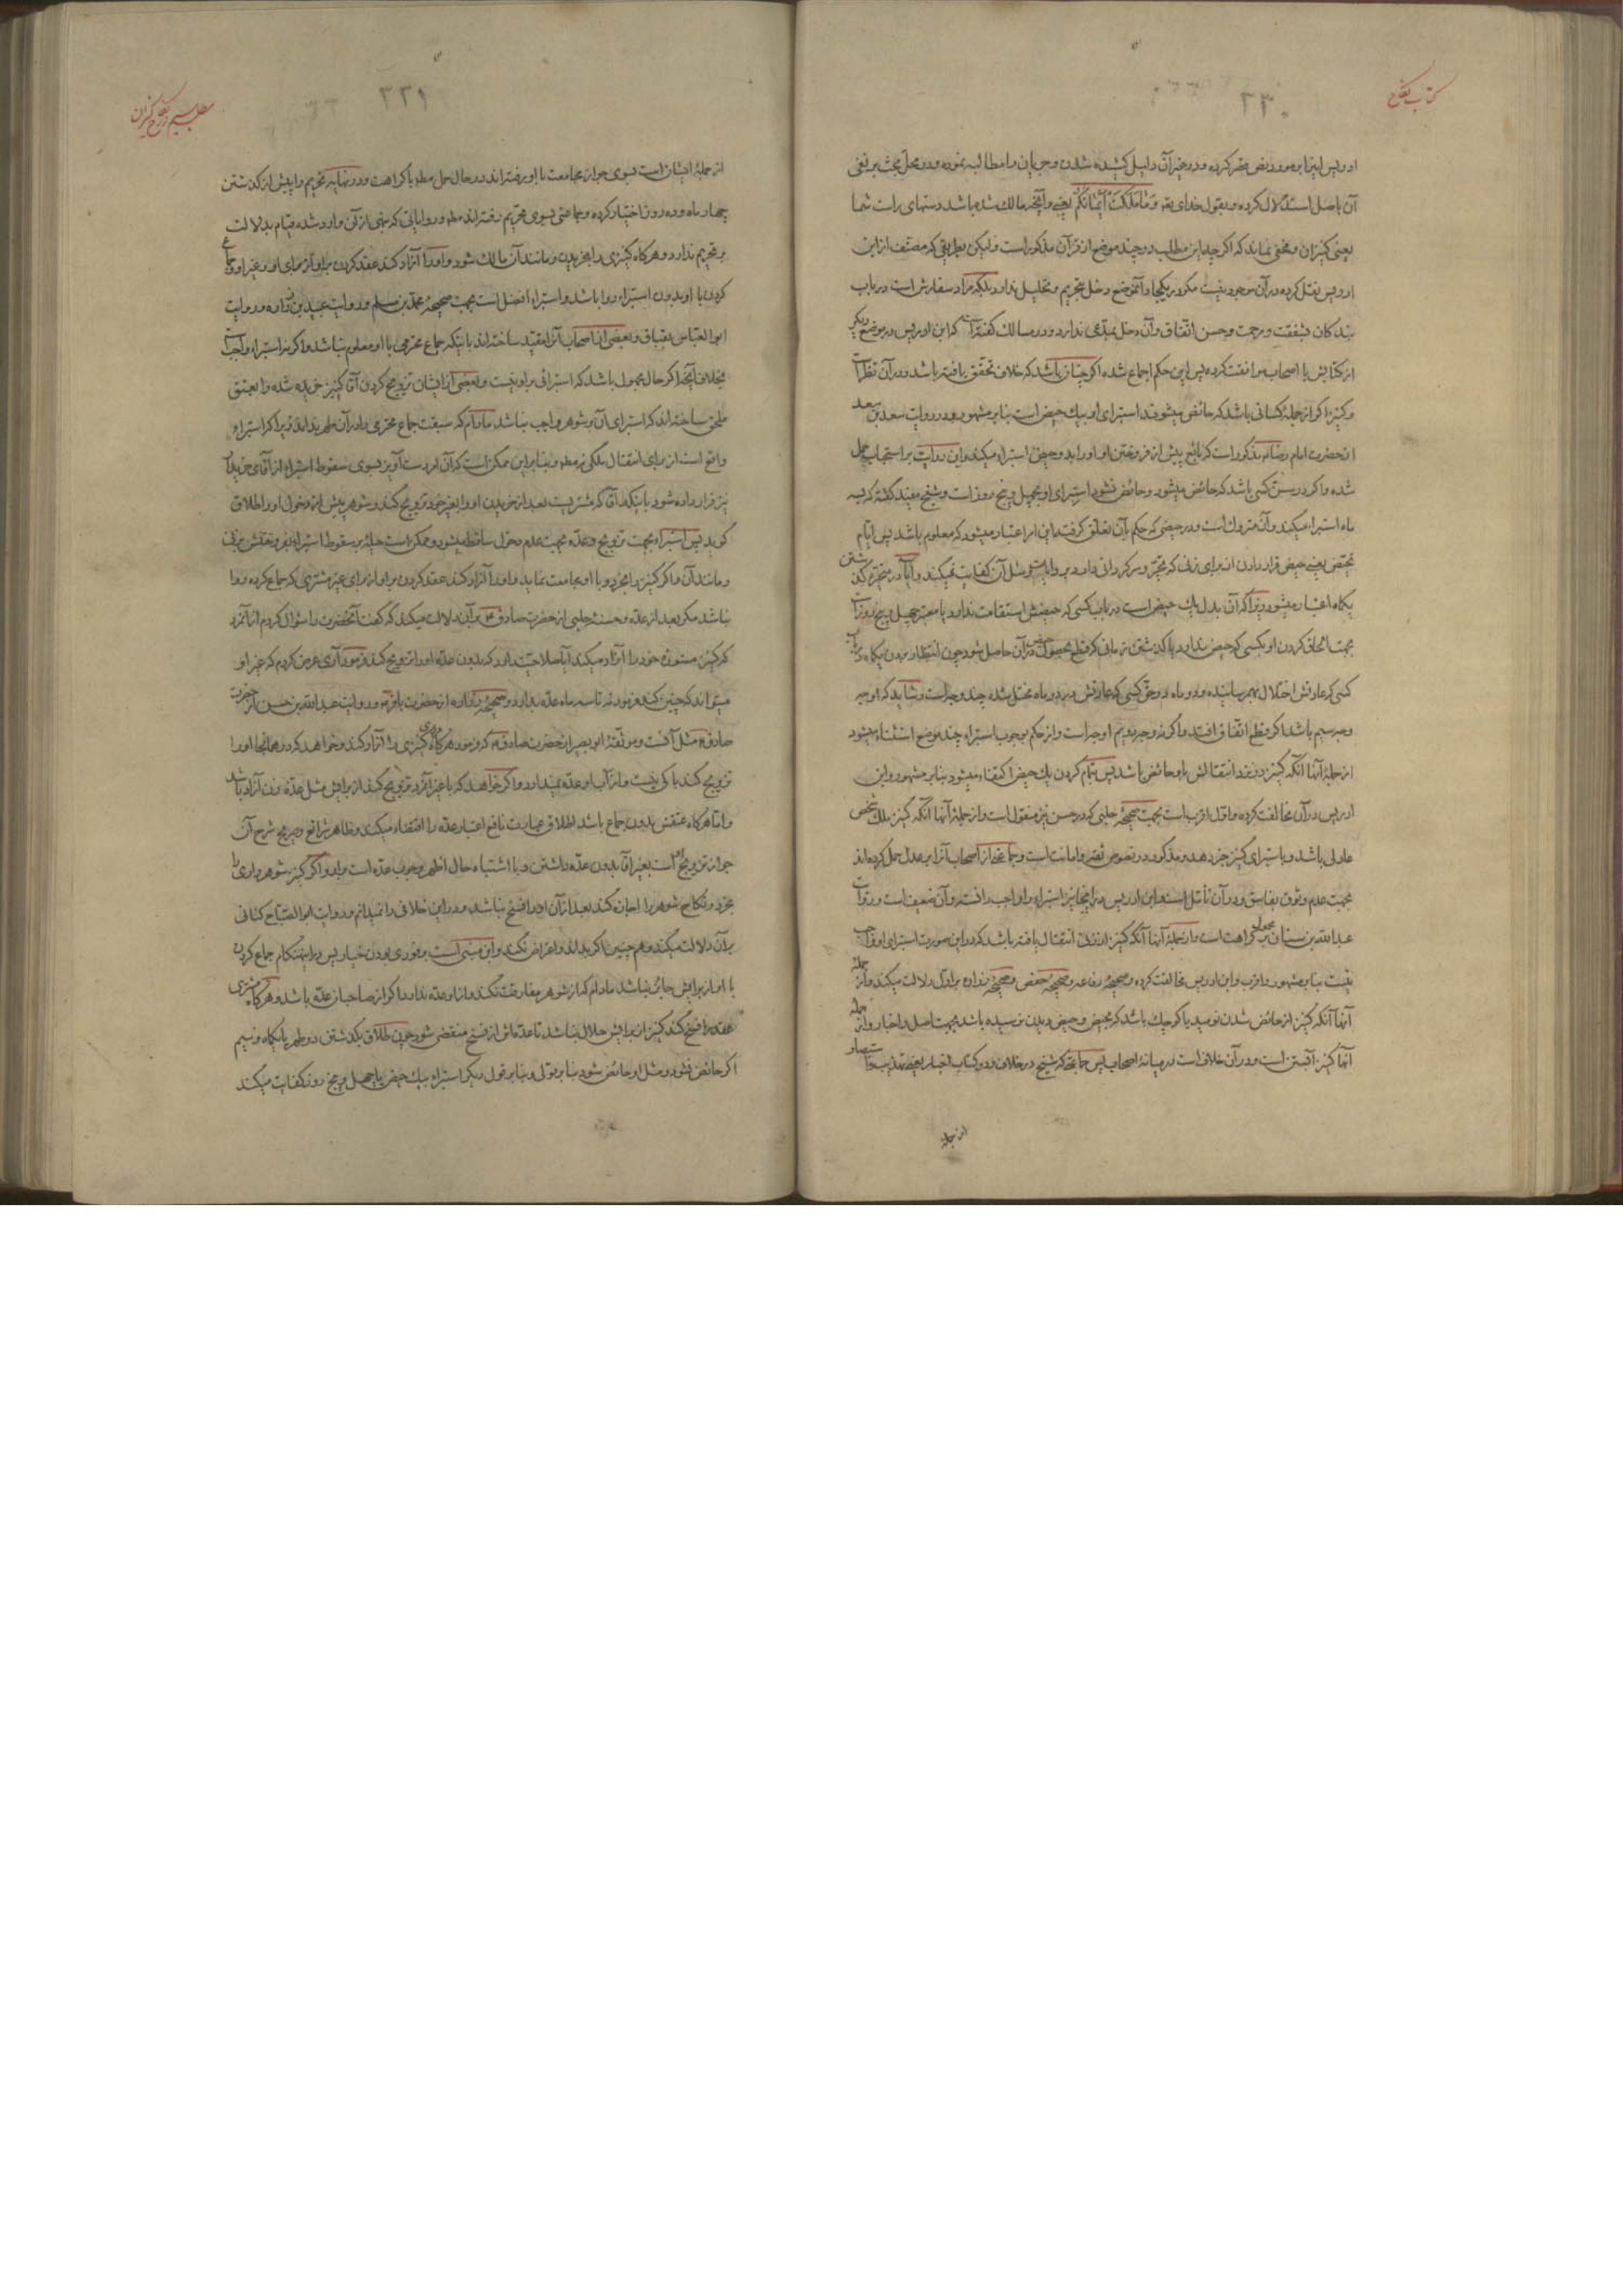 کتاب نکاح
۲۳۰
ادریس اینرا بمورد نص حصر کرده و در غیر آن دلیل کشیده شدن و جریان را مطالبه نموده و در محل بحث بر نفی
آن باصل استدلال کرده و بقول خدای تعالی وَمٰا مَلَكَتْ اَیْمٰانُكُمْ یعنی و آنچه مالک شده باشد دستهای راست شما
یعنی کنیزان و مخفی نماند که اگر چه این مطلب در چند موضع از قرآن مذکور است ولیکن بطریقی که مصنف از ابن
ادریس نقل کرده در آن موجود نیست مگر در یکجا و آنموضع دخل بتحریم و تحلیل ندارد بلکه مراد سفارش است در باب
بندکان بشفقت و مرحمت و حسن انفاق و آن دخل بمدعی ندارد و در مسالک گفته که ابن ادریس در موضع دیگر
از کتابش با اصحاب موافقت کرده پس این حکم اجماعی شده اگر چنان باشد که خلاف تحقق یافته باشد و در آن نظر است
و کنیز اگر از جملهٔ کسانی باشد که حائض میشوند استبرای او بیک حیض است بنابر مشهور و در روایت سعد بن سعد
از حضرت امام رضا مذکور است که بایع پیش از فروختن او او را بدو حیض استبراء میکند و این روایت بر استحباب حمل
شده و اگر در سن کسی باشد که حائض میشود و حائض نشود استبرای او بچهل و پنج روز است و شیخ مفید گفته که بسه
ماه استبراء میکند و آن متروک است و در حیضی که حکم بآن تعلق گرفته این امر اعتبار میشود که معلوم باشد پس ایام
تحیض یعنی حیض قرار دادن از برای زنی که متحیر و سرکردانی دارد بروایات و مثل آن کفایت نمیکند و آیا در متحیره گذشتن
یکماه اعتبار میشود زیرا که آن بدل یک حیض است در باب کسی که حیضش استقامت ندارد یا معتبر چهل و پنج روز است
بجهت الحاق کردن او بکسی که حیض ندارد یا گذشتن زمانی که قطع بحصول حیض در آن حاصل شود چون انتظار بردن یکماه در باب
کسی که عادتش اختلال بهم رسانیده و دو ماه در حق کسی که عادتش در دو ماه مختل شده چند وجه است و شاید که اوجه
وجه سیم باشد اگر قطع اتفاق افتد و اگر نه وجه دویم اوجه است و از حکم بوجوب استبراء چند موضع استثناء میشود
از جملهٔ آنها آنکه کنیز در نزد انتقالش باو حائض باشد پس بتمام کردن یک حیض اکتفاء میشود بنابر مشهور و ابن
ادریس در آن مخالفت کرده و اول اقرب است بجهت صحیحهٔ حلبی که در حسن نیز منقول است و از جملهٔ آنها آنکه کنیز ملک شخص
عادلی باشد و باستبرای کنیز خبر دهد و مذکور در نصوص ثقه و امانت است و جماعتی از اصحاب آنرا بعدل حمل کرده‌اند
بجهت عدم وثوق بفاسق و در آن تأمل است و ابن ادریس در اینجا نیز استبراء را واجب دانسته و آن ضعیف است و روایت
عبدالله بن سنان محمول بر کراهت است و از جملهٔ آنها آنکه کنیز از زنی انتقال یافته باشد که در این صورت استبرای او واجب
نیست بنابر مشهور و اقرب و ابن ادریس مخالفت کرده و صحیحهٔ رفاعه و صحیحهٔ حفص و صحیحهٔ زراره بر اول دلالت میکند و از جملهٔ
آنها آنکه کنیز از حائض شدن نومید یا کوچک باشد که بحیض و حیض دیدن نرسیده باشد بجهت اصل و اخبار و از جملهٔ
آنها کنیز آبستن است و در آن خلاف است در میانهٔ اصحاب پس جماعتی که شیخ در خلاف و دو کتاب اخبار یعنی تهذیب و استبصار
از جمله
مطلب سیم در نکاح کنیزان
۲۳۱
از جملهٔ ایشان است بسوی جواز مجامعت با او رفته‌اند در حال حمل مطلقا با کراهت و در نهایه تحریم را پیش از گذشتن
چهار ماه و ده روز اختیار کرده و جماعتی بسوی تحریم رفته‌اند مطلقا و روایاتی که بنهی از آن وارد شده قیام بدلالت
بر تحریم ندارد و هرگاه کنیزی را بخریدن و مانند آن مالک شود و او را آزاد کند عقد کردن بر او از برای او و غیر او و جماع
کردن با او بدون استبراء روا باشد و استبراء افضل است بجهت صحیحهٔ محمد بن مسلم و روایت عبید بن زراره و روایت
ابوالعباس بقباق و بعضی از اصحاب آنرا مقید ساخته‌اند باینکه جماع محترمی با او معلوم نباشد و اگر نه استبراء واجب است
بخلاف آنچه اگر حال مجهول باشد که استبرائی بر او نیست و بعضی از ایشان تزویج کردن آقا کنیز خریده شده را بعتق
ملحق ساخته‌اند که استبرای آن بر شوهر واجب نباشد مادام که سبقت جماع محترمی را در آن طهر نداند زیرا که استبراء
واقع است از برای انتقال ملکی نه مطلقا و بنابر این ممکن است که آن را دست آویز بسوی سقوط استبراء از آقای خریدار
نیز قرار داده شود باینکه آقا که مشتریست بعد از خریدن او را بغیر خود تزویج کند و شوهر پیش از دخول او را طلاق
گوید پس استبراء بجهت تزویج و عده بجهت عدم دخول ساقط میشود و ممکن است حیلهٔ بر سقوط استبراء بفروختنش بزنی
و مانند آن و اگر کنیز را بخرد و با او مجامعت نماید و او را آزاد کند عقد کردن بر او از برای غیر مشتری که جماع کرده روا
نباشد مگر بعد از عده و حسنهٔ حلبی از حضرت صادق بر آن دلالت میکند که گفت آنحضرت را سؤال کردم از آنمرد
که کنیز مستوره خود را آزاد میکند آیا صلاحیت دارد که بدون عده او را تزویج کند فرمود آری عرض کردم که غیر او
میتواند که چنین کند فرمود نه تا سه ماه عده بدارد و صحیحهٔ زراره از حضرت باقر و روایت عبدالله بن حسن از حضرت
صادق مثل آنست و موثقهٔ ابوبصیر از حضرت صادق که فرمود هرگاه مردی کنیزی را آزاد کند و خواهد که در همانجا او را
تزویج کند باکی نیست و از آب او عده نمیدارد و اگر خواهد که با غیر آنمرد تزویج کند از برایش مثل عدهٔ زن آزاد باشد
و اما هرگاه عتقش بدون جماع باشد اطلاق عبارت نافع اعتبار عده را اقتضاء میکند و ظاهر شرائع و صریح شرح آن
جواز تزویج اوست بغیر آقا بدون عده داشتن و با اشتباه حال اظهر وجوب عده است بر او و اگر کنیز شوهرداری را
بخرد و نکاح شوهر را اجازه کند بعد از آن او را فسخ نباشد و در این خلافی را نمیدانم و روایت ابوالصباح کنانی
بر آن دلالت میکند و هم چنین اگر بداند و اعتراض نکند و این مبنی است بر فوری بودن خیار پس در اینهنگام جماع کردن
با او از برایش جائز نباشد مادام که از شوهر مفارقت نکند و از او عده ندارد اگر از صاحبان عده باشد و هرگاه مشتری
عقد را فسخ کند کنیز از برایش حلال نباشد تا عده‌اش از فسخ منقضی شود چون طلاق بگذشتن دو طهر یا یکماه و نیم
اگر حائض نشود و مثل او حائض شود بنابر قولی و بنابر قول دیگر استبراء بیک حیض یا چهل و پنج روز کفایت میکند